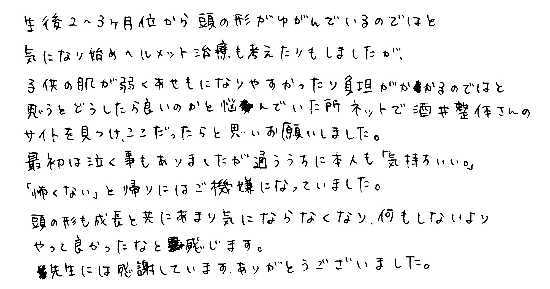 生後2～3ヶ月位から頭の形がゆがんでいるのではと
気になり始めヘルメット治療も考えたりもしましたが、
子供の肌が弱くあせもになりやすかったり負担がかかるのではと
思うとどうしたら良いのかと悩んでいた所ネットで酒井整体さんの
サイトを見つけ、ここだったらと思いお願いしました。
最初は泣く事もありましたが通ううちに本人も「気持ちいい。」
「怖くない」と帰りにはご機嫌になっていました。
頭の形も成長と共にあまり気にならなくなり、何もしないより
やって良かったなと感じます。
先生には感謝しています。ありがとうございました。